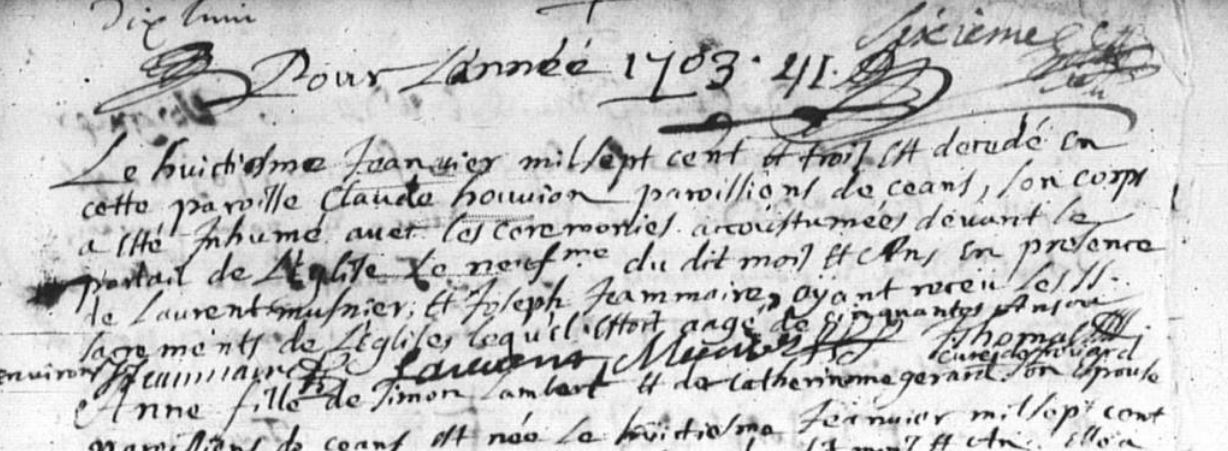 Sixieme
Pour L'année 1703 · 41.
Le huictiesme Jeanvier mil sept cent et trois est decedé en
cette paroisse Claude houvion paroissiens de ceans, son corps
a esté Inhumé avec les ceremonies accoustumées devant le
portail de L'Eglise Le neufme du dit mois et Ans En presence
de Laurent musnier, et Joseph Jeammaire, ayant receu les SS.
sacrements de L'Eglises lequel estoit aagé de cinquantes Ans ou
environ Jeanmaire Laurent Thomas
curé de
Anne fille de Simon Lambert et de Catherinne gerard son Epouse
paroissiens de ceans est née Le huictiesme Jeanvier mil sept cent